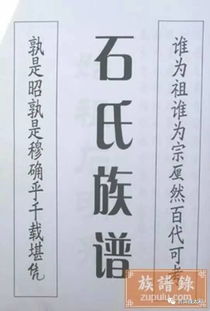 谁为祖谁为宗厘然百代可考
石氏族谱
孰是昭孰是穆确乎千载堪凭
族譜錄
zupulu.com